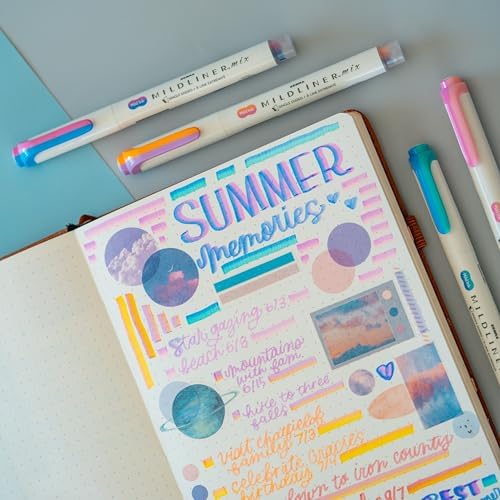 ZEBRA
MILDLINER mix
ZEBRA
MILDLINER mix
SUMMER
memories
Star gazing 6/3
beach 6/8
mountains
with fam.
6/15
hike to three
falls
visit
family 7/3
celebrate Gracie's
birthday 7/4
down to iron county
9/7